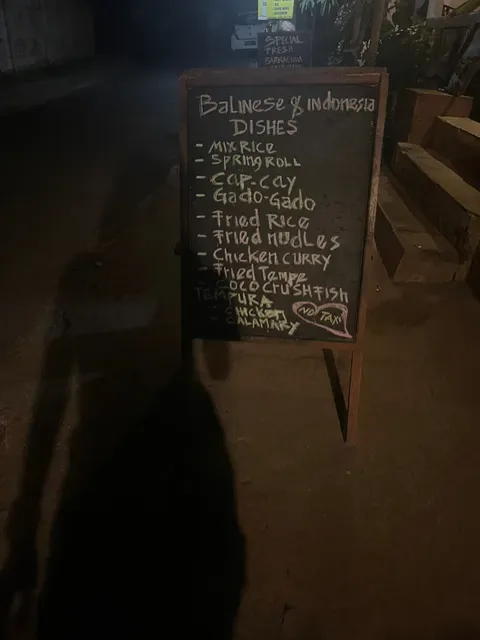 SPECIAL
FRESH
BARRACUDA
BALINESE & INDONESIA
DISHES
- MIX RICE
- SPRING ROLL
- CAP-CAY
- GADO-GADO
- FRIED RICE
- FRIED NUDLES
- CHICKEN CURRY
- FRIED TEMPE
- COCO CRUSH FISH
TEMPURA
- CHICKEN
- CALAMARY
NO TAX